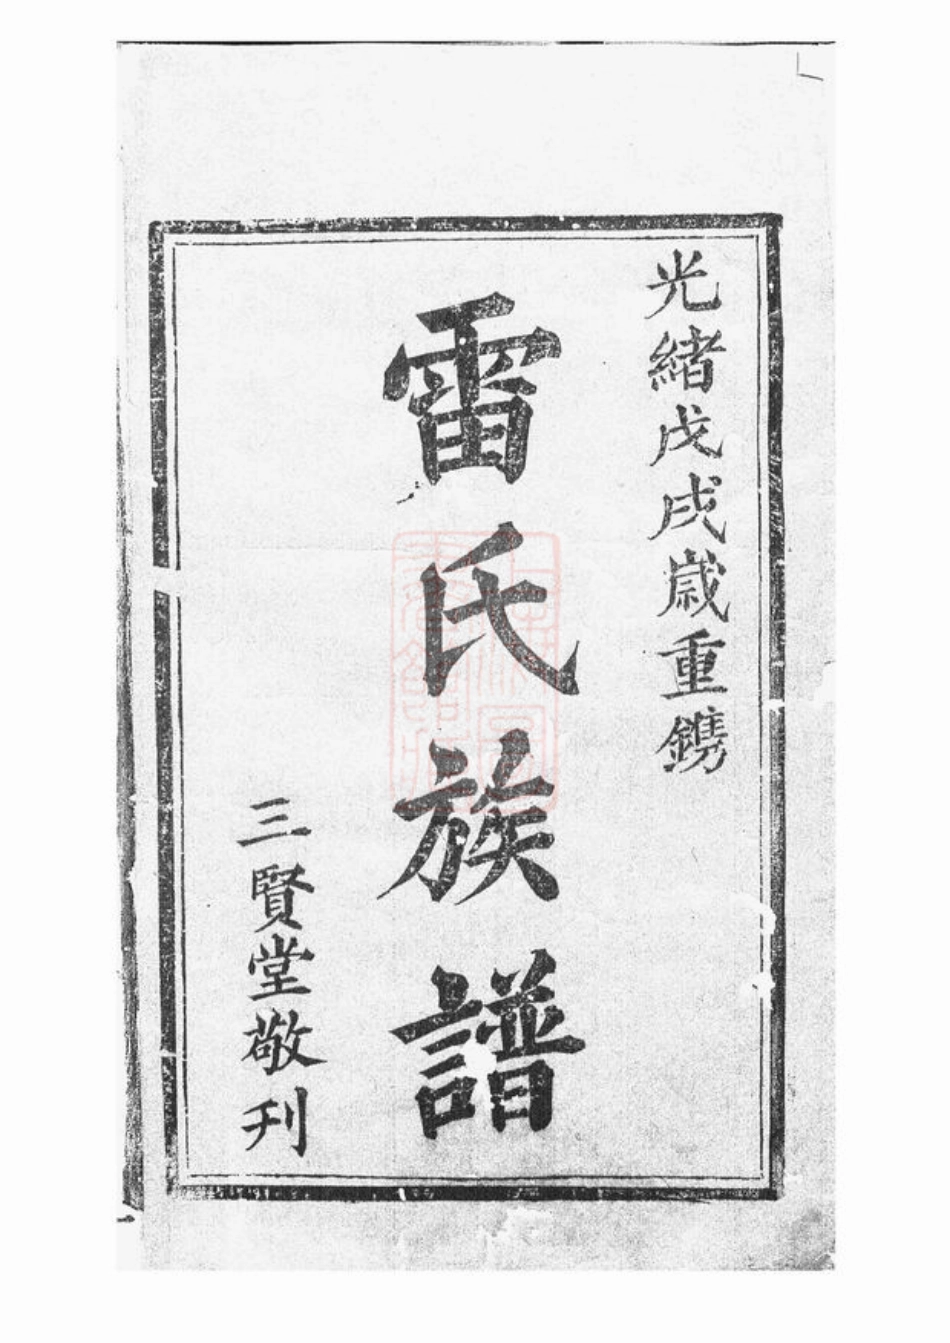 光緒戊戌歲重鐫
雷氏族譜
三賢堂敬刊